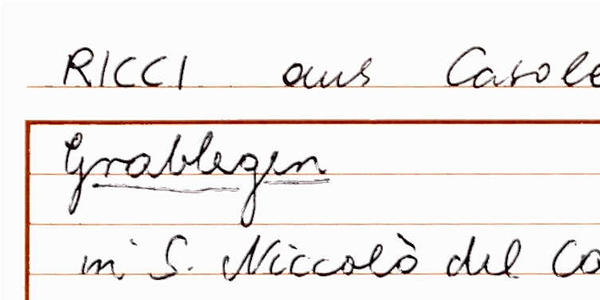 RICCI aus Casole
Grablegen
in S. Niccolò del